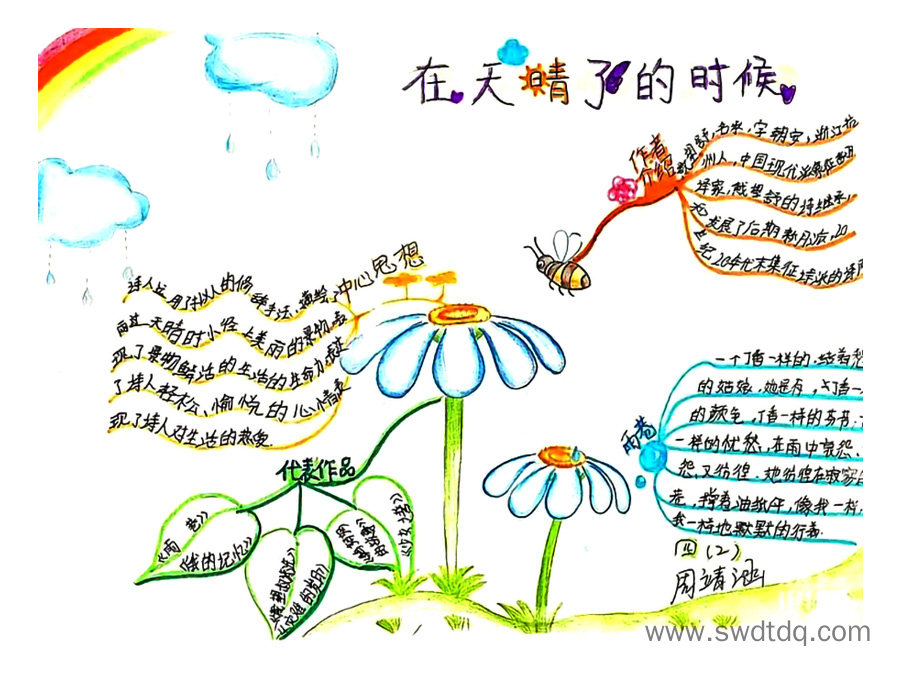 在天晴了的时候
作者
介绍
戴望舒,名承,字朝安,浙江杭
州人,中国现代派象征
译家,戴望舒的诗继承,
发展了后期新月派,20
世纪20年代末象征诗派的
中心思想
诗人运用了拟人的修辞手法,描绘
雨过天晴时小径上美丽的景物,表
现了景物鲜活的生活的生命力,表达
了诗人轻松、愉悦的心情,表
现了诗人对生活的热爱.
代表作品
《雨巷》
《我的记忆》
《望舒
《灾难的岁月》
雨巷
一个丁香一样的,结着愁
的姑娘,她是有,丁香一
的颜色,丁香一样的芬芳,
一样的忧愁,在雨中哀怨、
怨,又彷徨,她彷徨在寂寥的
巷,撑着油纸伞,像我一样,
我一样地默默的行着.
四(2)
周靖涵
www.swdtdq.com